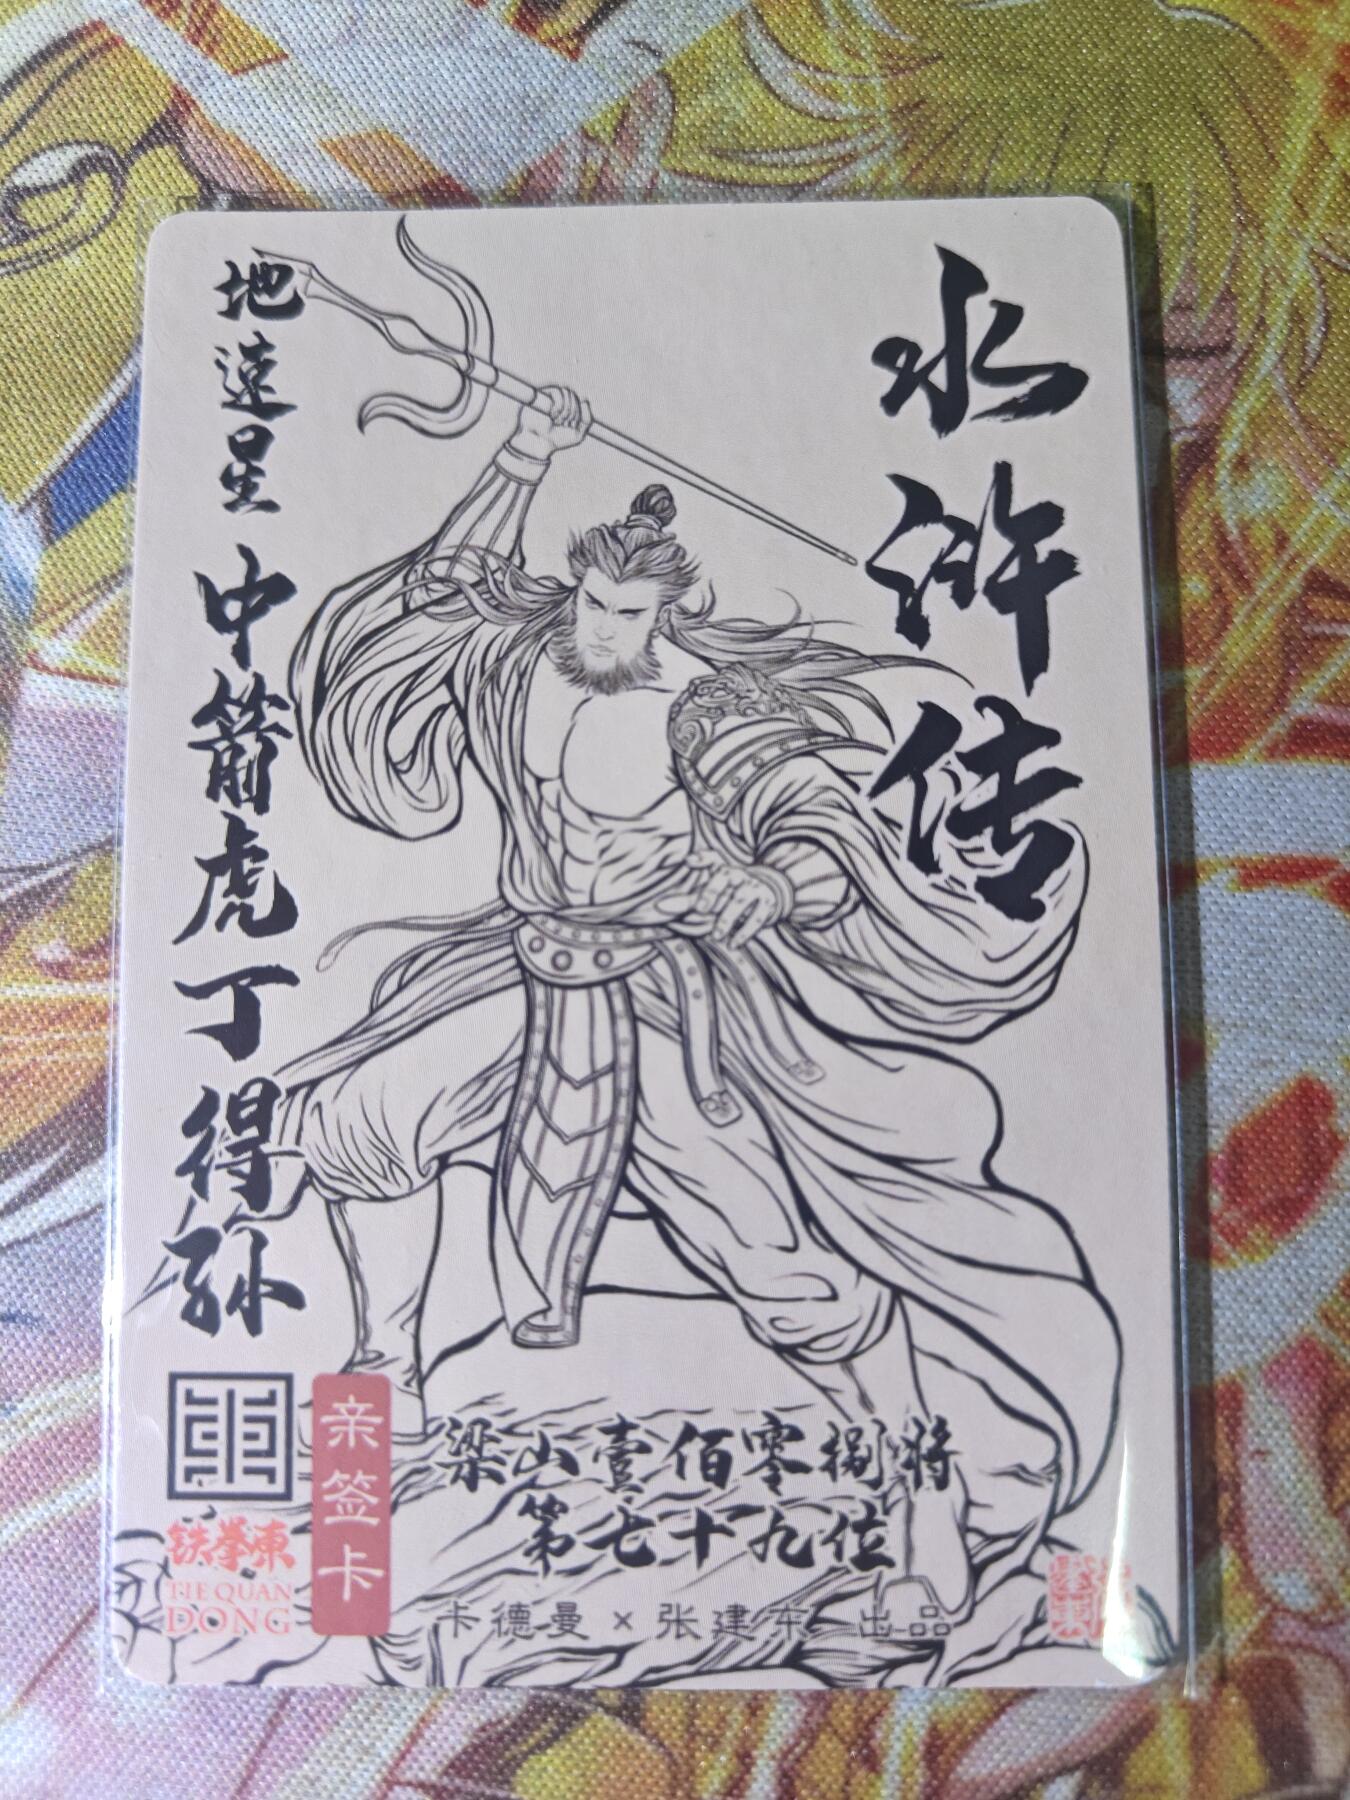 水浒传
地速星 中箭虎 丁得孙
亲签卡
梁山壹佰零捌将
第七十九位
铁拳東
TIE QUAN
DONG
卡德曼 x 张建东 出品